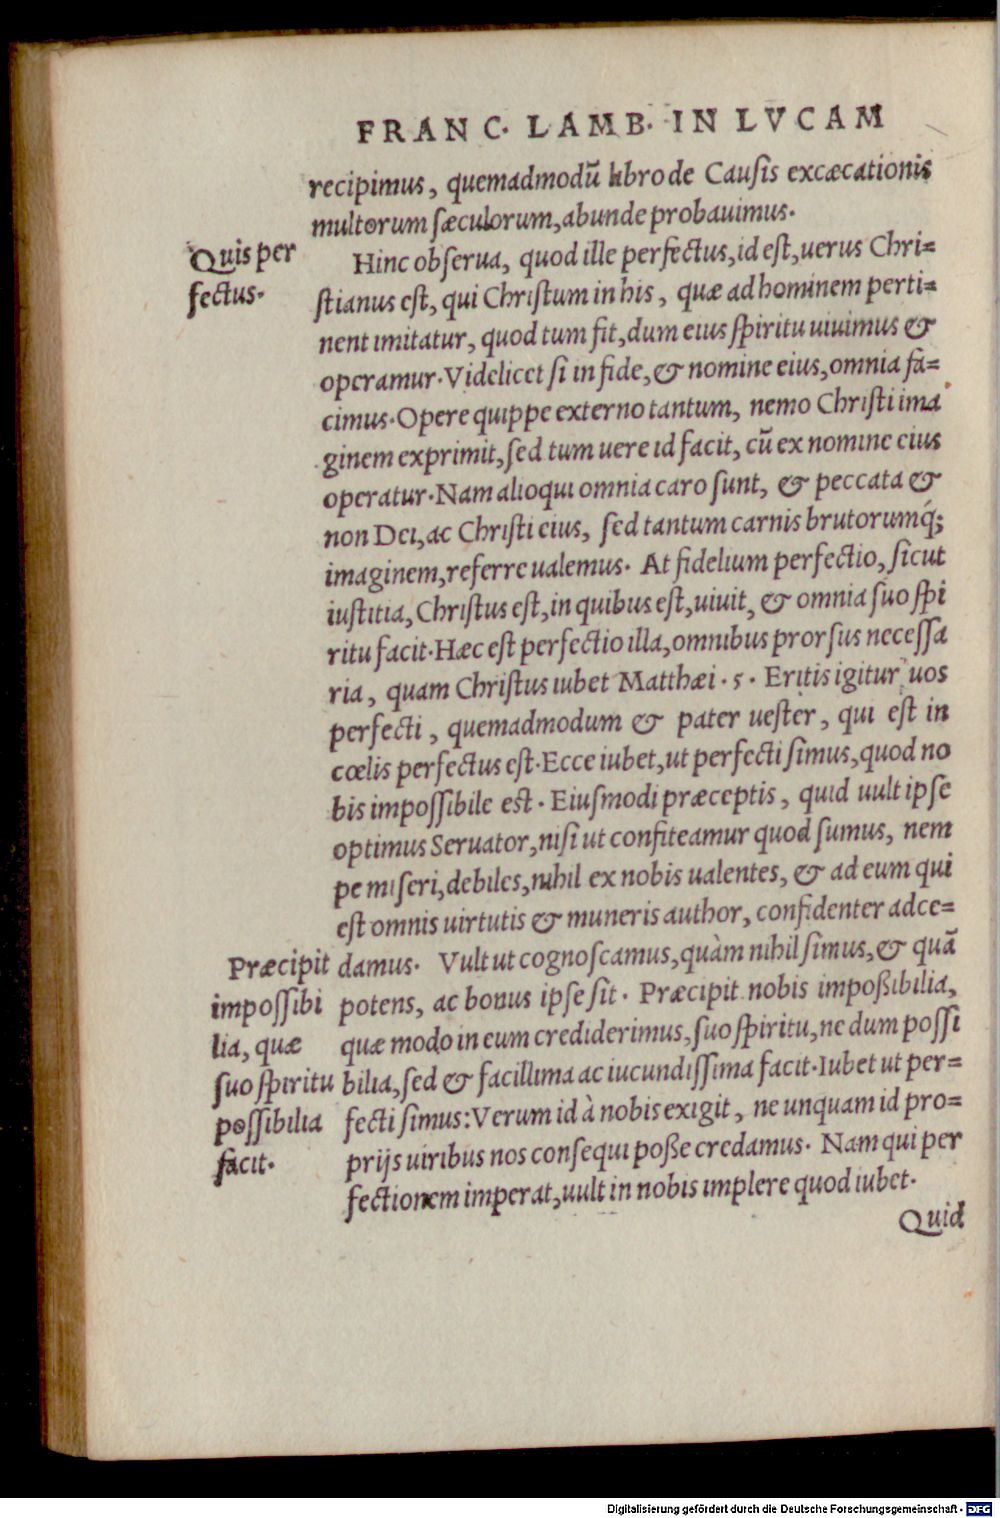 FRANC. LAMB. IN LVCAM
recipimus, quemadmodū libro de Causis excæcationis
multorum sæculorum, abunde probauimus.
Quis per
fectus.
Hinc obserua, quod ille perfectus, id est, uerus Chri=
stianus est, qui Christum in his, quæ ad hominem perti=
nent imitatur, quod tum fit, dum eius spiritu uiuimus &
operamur. Videlicet si in fide, & nomine eius, omnia fa=
cimus. Opere quippe externo tantum, nemo Christi ima
ginem exprimit, sed tum uere id facit, cū ex nomine eius
operatur. Nam alioqui omnia caro sunt, & peccata &
non Dei, ac Christi eius, sed tantum carnis brutorumq́;
imaginem, referre ualemus. At fidelium perfectio, sicut
iustitia, Christus est, in quibus est, uiuit, & omnia suo spi
ritu facit. Hæc est perfectio illa, omnibus prorsus necessa
ria, quam Christus iubet Matthæi. 5. Eritis igitur uos
perfecti, quemadmodum & pater uester, qui est in
cœlis perfectus est. Ecce iubet, ut perfecti simus, quod no
bis impossibile est. Eiusmodi præceptis, quid uult ipse
optimus Seruator, nisi ut confiteamur quod sumus, nem
pe miseri, debiles, nihil ex nobis ualentes, & ad eum qui
est omnis uirtutis & muneris author, confidenter adce=
damus. Vult ut cognoscamus, quàm nihil simus, & quā
potens, ac bonus ipse sit. Præcipit nobis impoßibilia,
quæ modo in eum crediderimus, suo spiritu, ne dum possi
bilia, sed & facillima ac iucundissima facit. Iubet ut per=
fecti simus: Verum id à nobis exigit, ne unquam id pro=
prijs uiribus nos consequi poße credamus. Nam qui per
fectionem imperat, uult in nobis implere quod iubet.
Præcipit
impossibi
lia, quæ
suo spiritu
possibilia
facit.
Quid
Digitalisierung gefördert durch die Deutsche Forschungsgemeinschaft - DFG